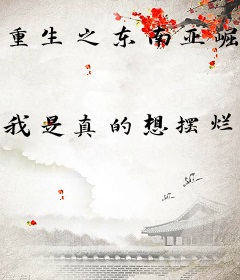 重生之东南亚崛
我是真的想摆烂